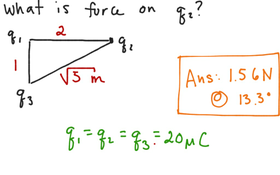 What is force on q₂?
q₁ 2 q₂
1
√5 m
q₃
Ans: 1.56N
@ 13.3°
q₁ = q₂ = q₃ = 20 μC